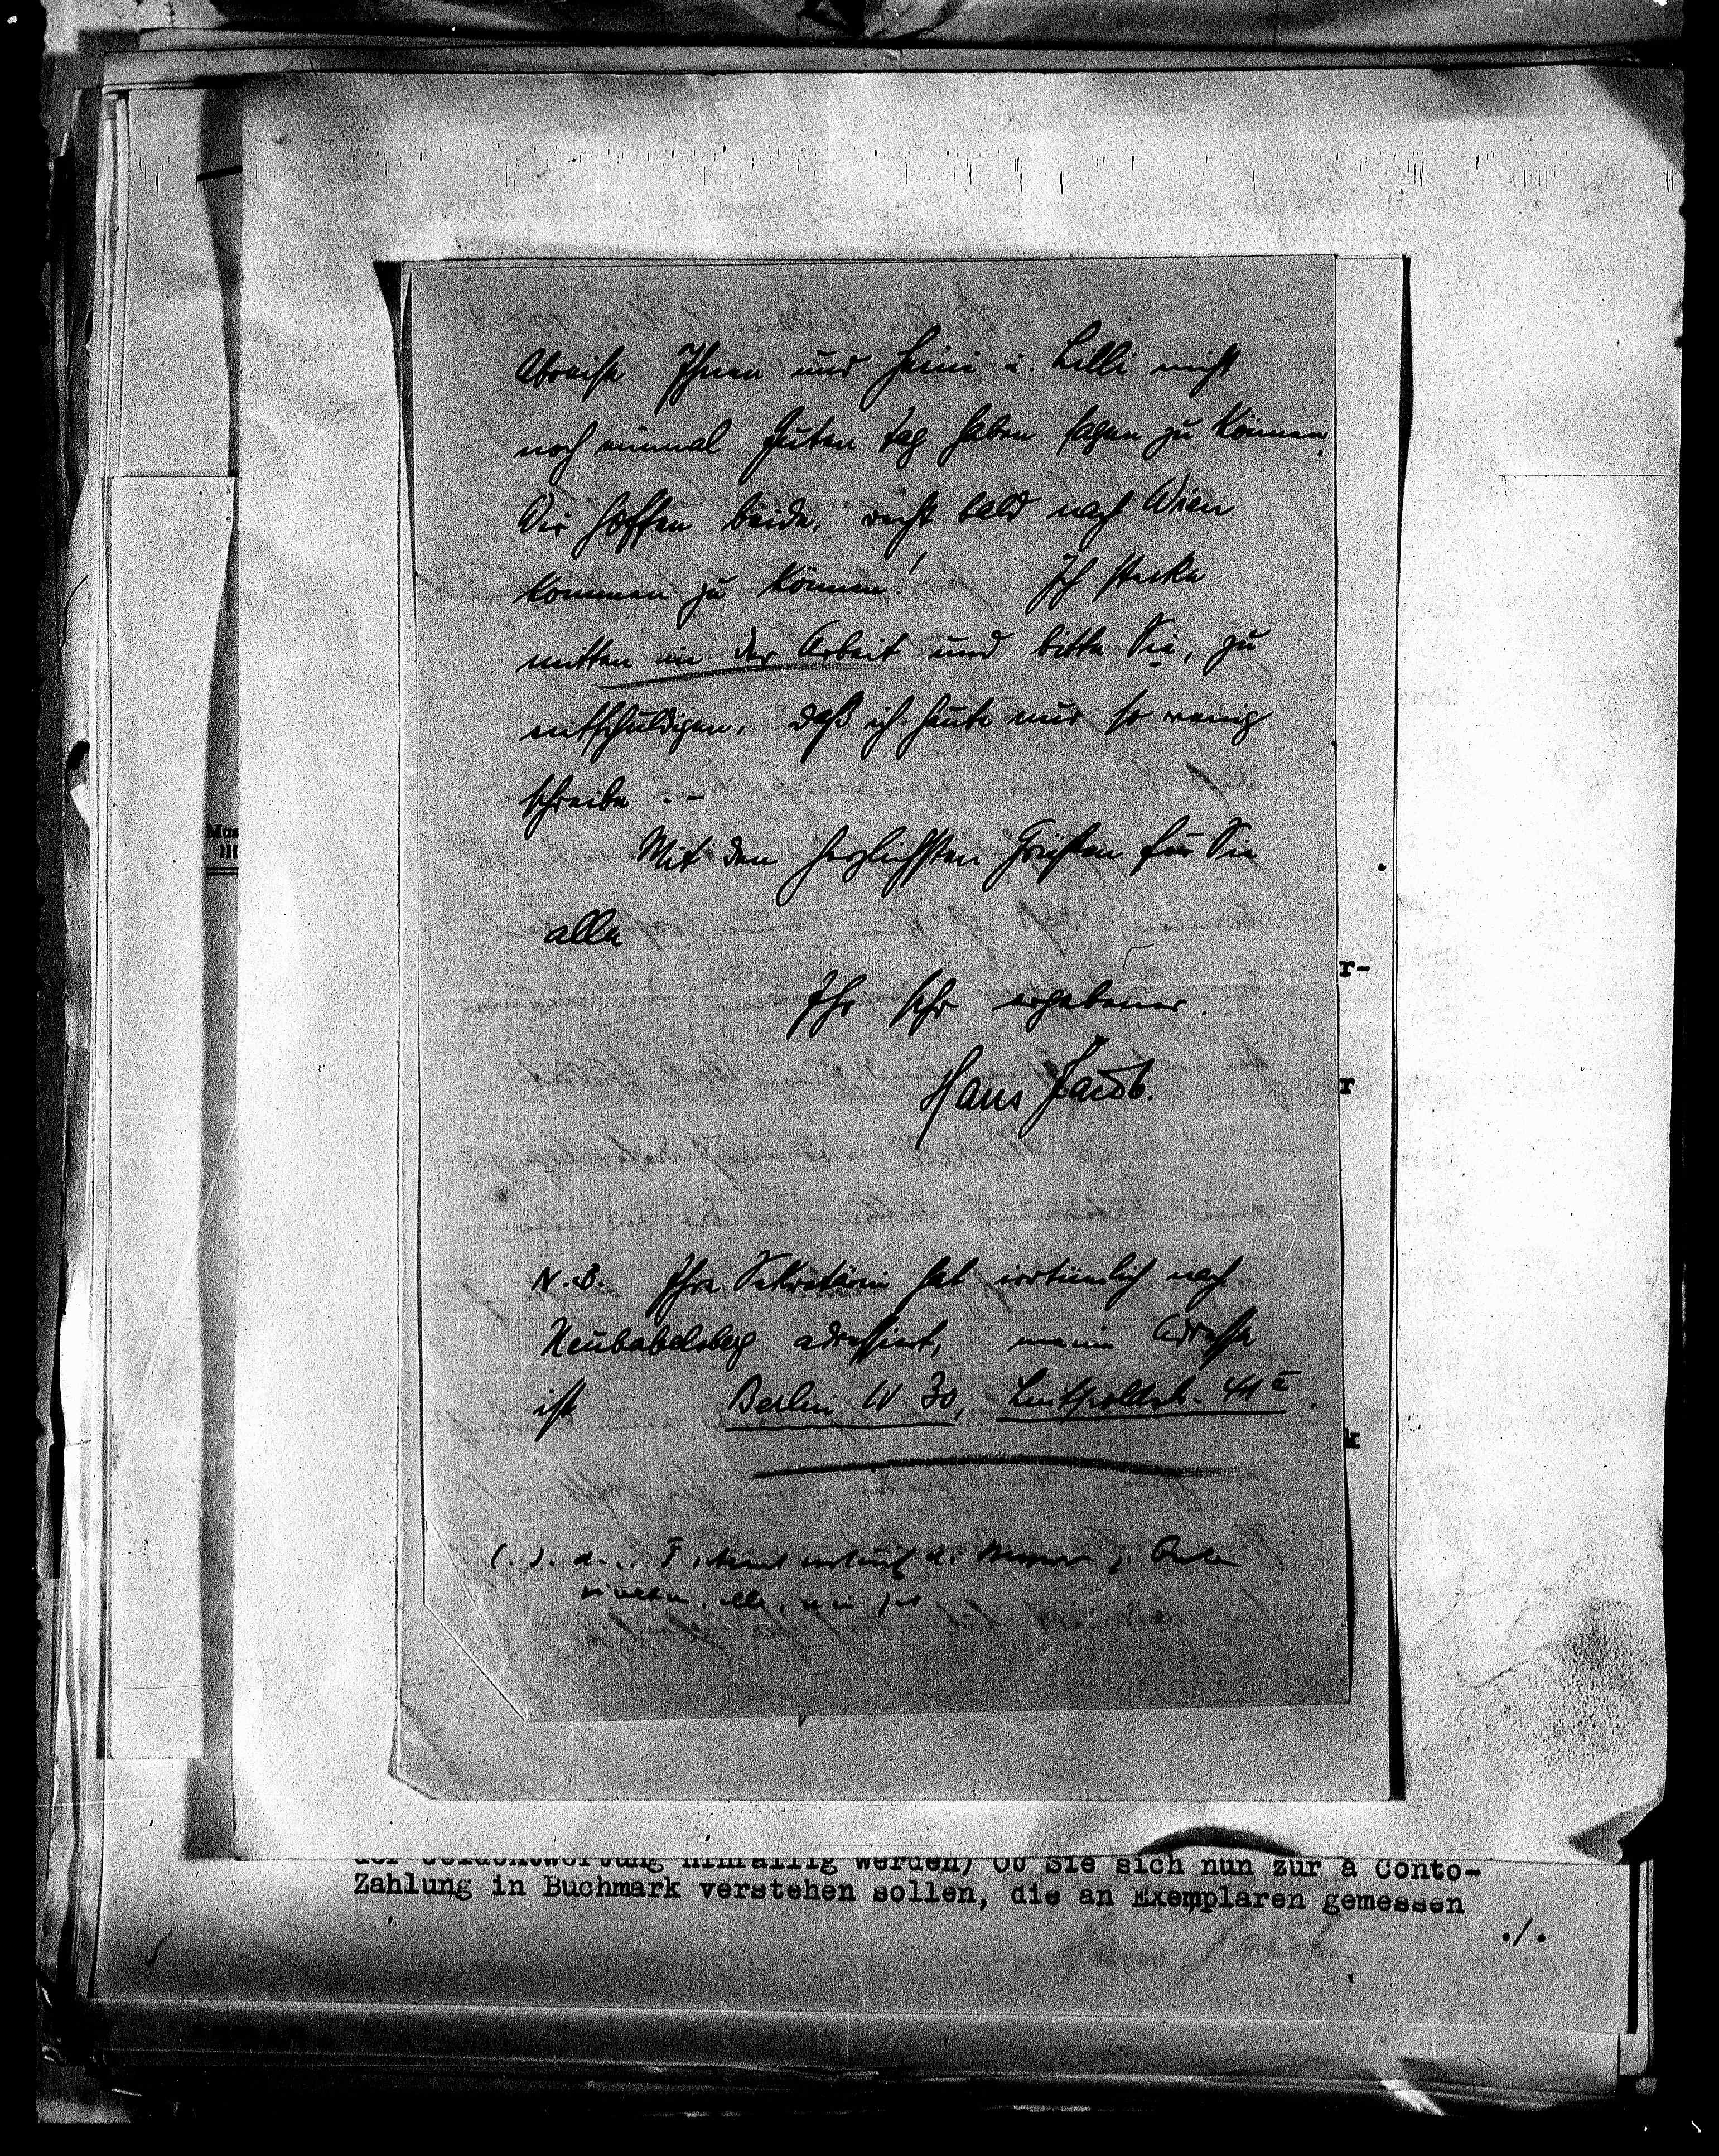 Abreise Ihnen und Heini u. Lilli nicht
noch einmal Guten Tag haben sagen zu können.
Wir hoffen beide, recht bald nach Wien
kommen zu können! Ich stecke
mitten in der Arbeit und bitte Sie, zu
entschuldigen, daß ich heute nur so wenig
schreibe.-
Mit den herzlichsten Grüßen für Sie
alle
Ihr sehr ergebener.
Hans Jacob.
N.B. Ihre Sekretärin hat irrtümlich nach
Neubabelsberg adressiert, meine Adresse
ist Berlin W 30, Luitpoldstr. 41
Mus
III
r-
r
werden) Ob Sie sich nun zur à Conto-
Zahlung in Buchmark verstehen sollen, die an Exemplaren gemessen
./.